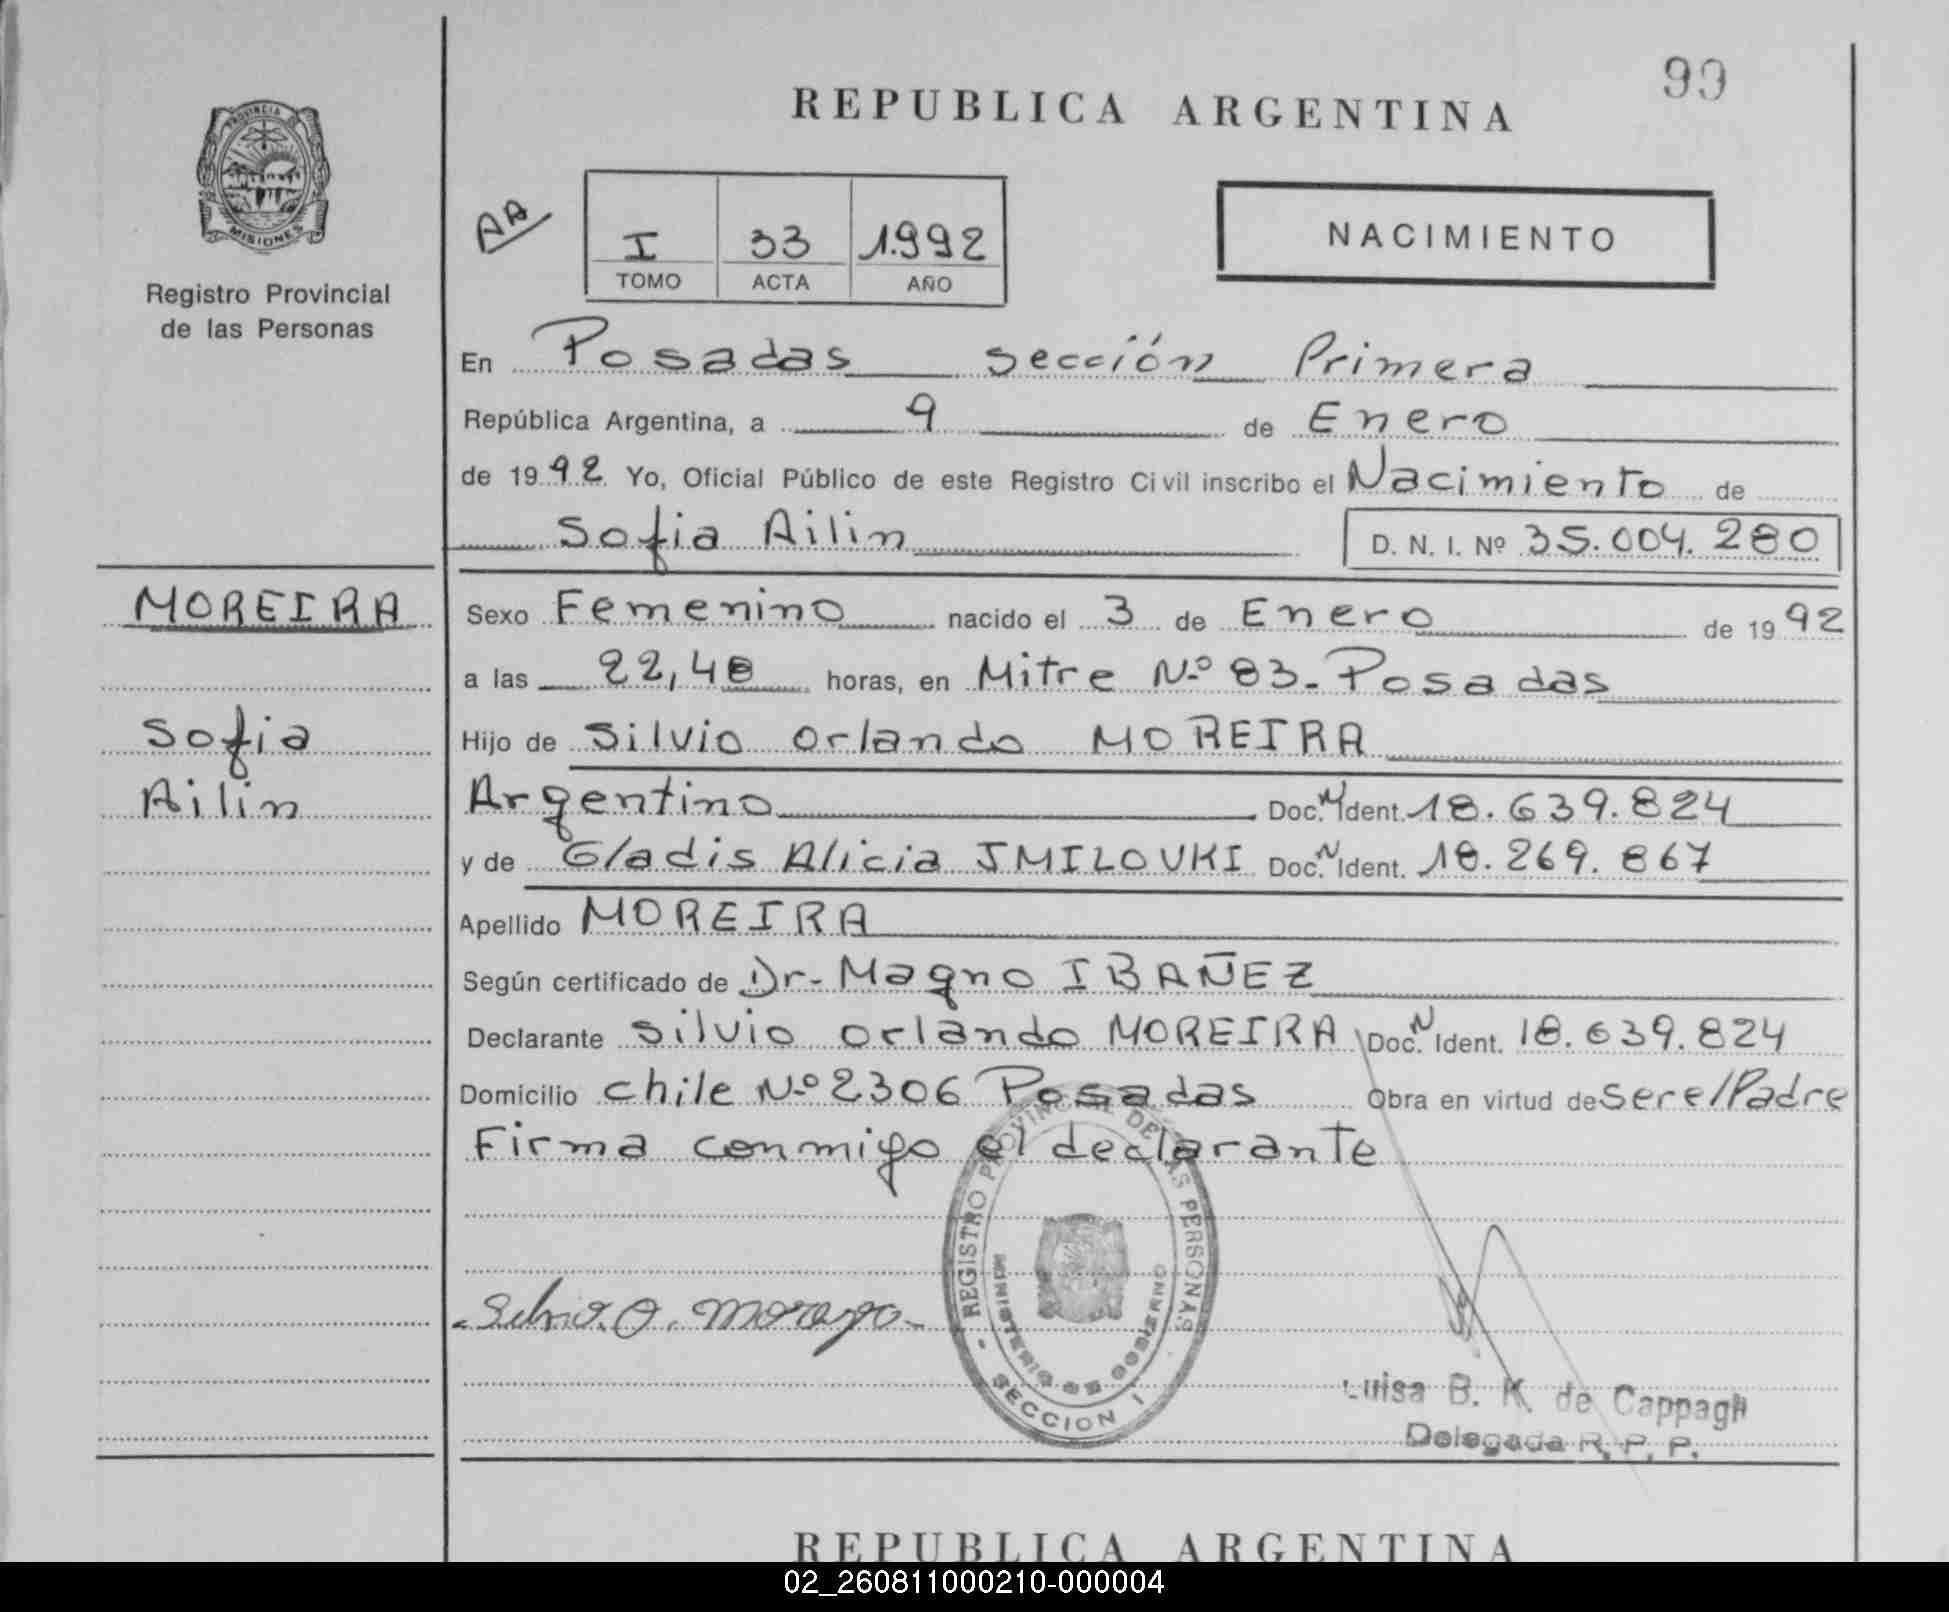 99
REPUBLICA ARGENTINA
PROVINCIA DE
MISIONES
Registro Provincial
de las Personas
AA
I 33 1.992
TOMO ACTA AÑO
NACIMIENTO
En Posadas Sección Primera
República Argentina, a 9 de Enero
de 1992 Yo, Oficial Público de este Registro Civil inscribo el Nacimiento de
Sofia Ailin D. N. I. Nº 35.004.280
MOREIRA
Sofia
Ailin
Sexo Femenino nacido el 3 de Enero de 1992
a las 22,48 horas, en Mitre Nº 83. Posadas
Hijo de Silvio Orlando MOREIRA
Argentino Doc. N Ident. 18.639.824
y de Gladis Alicia JMILOVKI Doc. N Ident. 18.269.867
Apellido MOREIRA
Según certificado de Dr. Magno IBAÑEZ
Declarante Silvio Orlando MOREIRA Doc. N Ident. 18.639.824
Domicilio Chile Nº 2306 Posadas Obra en virtud de Ser el Padre
Firma conmigo el declarante
REGISTRO PROVINCIAL DE LAS PERSONAS
MINISTERIO DE GOBIERNO
SECCION I
Silvio. O. Moreyra
Luisa B. K. de Cappagli
Delegada R. P. P.
REPUBLICA ARGENTINA
02_260811000210-000004